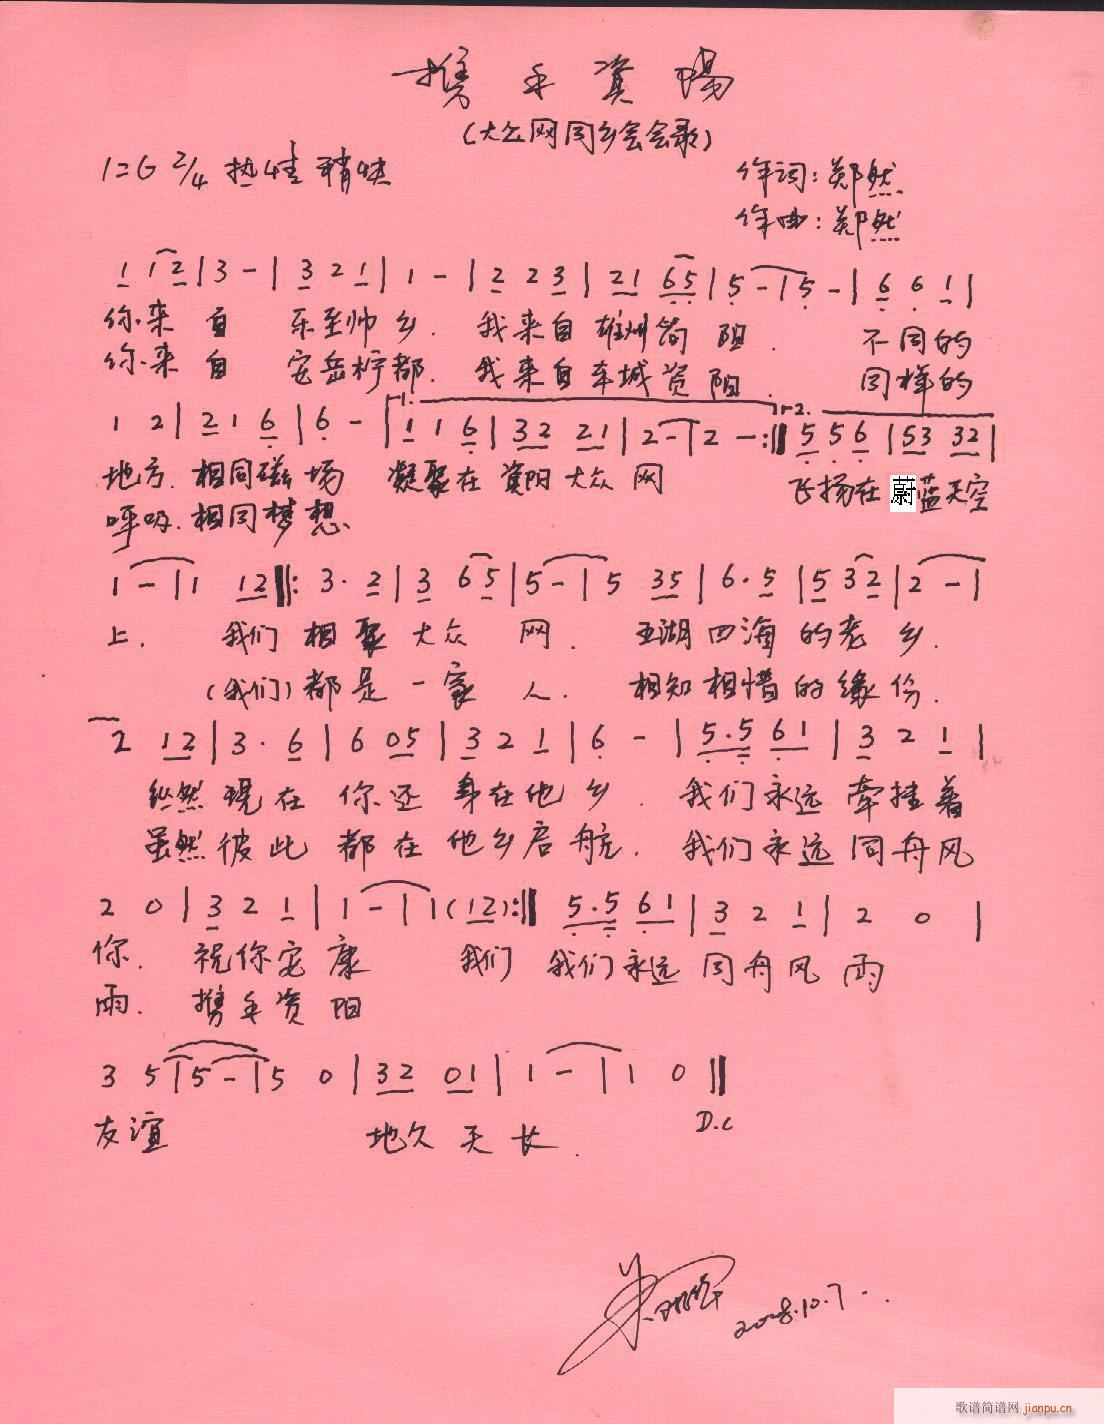 携手资阳
(大众网同乡会会歌)
1=G 2/4 热情 稍快
作词:郑然
作曲:郑然
1 1 2 | 3 - | 3 2 1 | 1 - | 2 2 3 | 2 1 6 5 | 5 - | 5 - | 6 6 1 |
你来自 乐至帅乡. 我来自雄州简阳. 不同的
你来自 安岳柠都. 我来自车城资阳. 同样的
1 2 | 2 1 6 | 6 - | 1. 1 1 6 | 3 2 2 1 | 2 - | 2 - :‖ 2. 5 5 6 | 5 3 3 2 |
地方.相同磁场 凝聚在资阳大众网 飞扬在蔚蓝天空
呼吸.相同梦想
1 - | 1 1 2 ‖: 3 · 2 | 3 6 5 | 5 - | 5 3 5 | 6 · 5 | 5 3 2 | 2 - |
上. 我们相聚大众网. 五湖四海的老乡.
(我们)都是一家人. 相知相惜的缘份.
2 1 2 | 3 · 6 | 6 0 5 | 3 2 1 | 6 - | 5 . 5 6 1 | 3 2 1 |
纵然现在你还身在他乡. 我们永远牵挂着
虽然彼此都在他乡启航. 我们永远同舟风
2 0 | 3 2 1 | 1 - | 1 (1 2) :‖ 5 . 5 6 1 | 3 2 1 | 2 0 |
你. 祝你安康 我们 我们永远同舟风雨
雨. 携手资阳
3 5 | 5 - | 5 0 | 3 2 0 1 | 1 - | 1 0 ‖
友谊 地久天长.
D.C
2008.10.7
歌谱简谱网 jianpu.cn